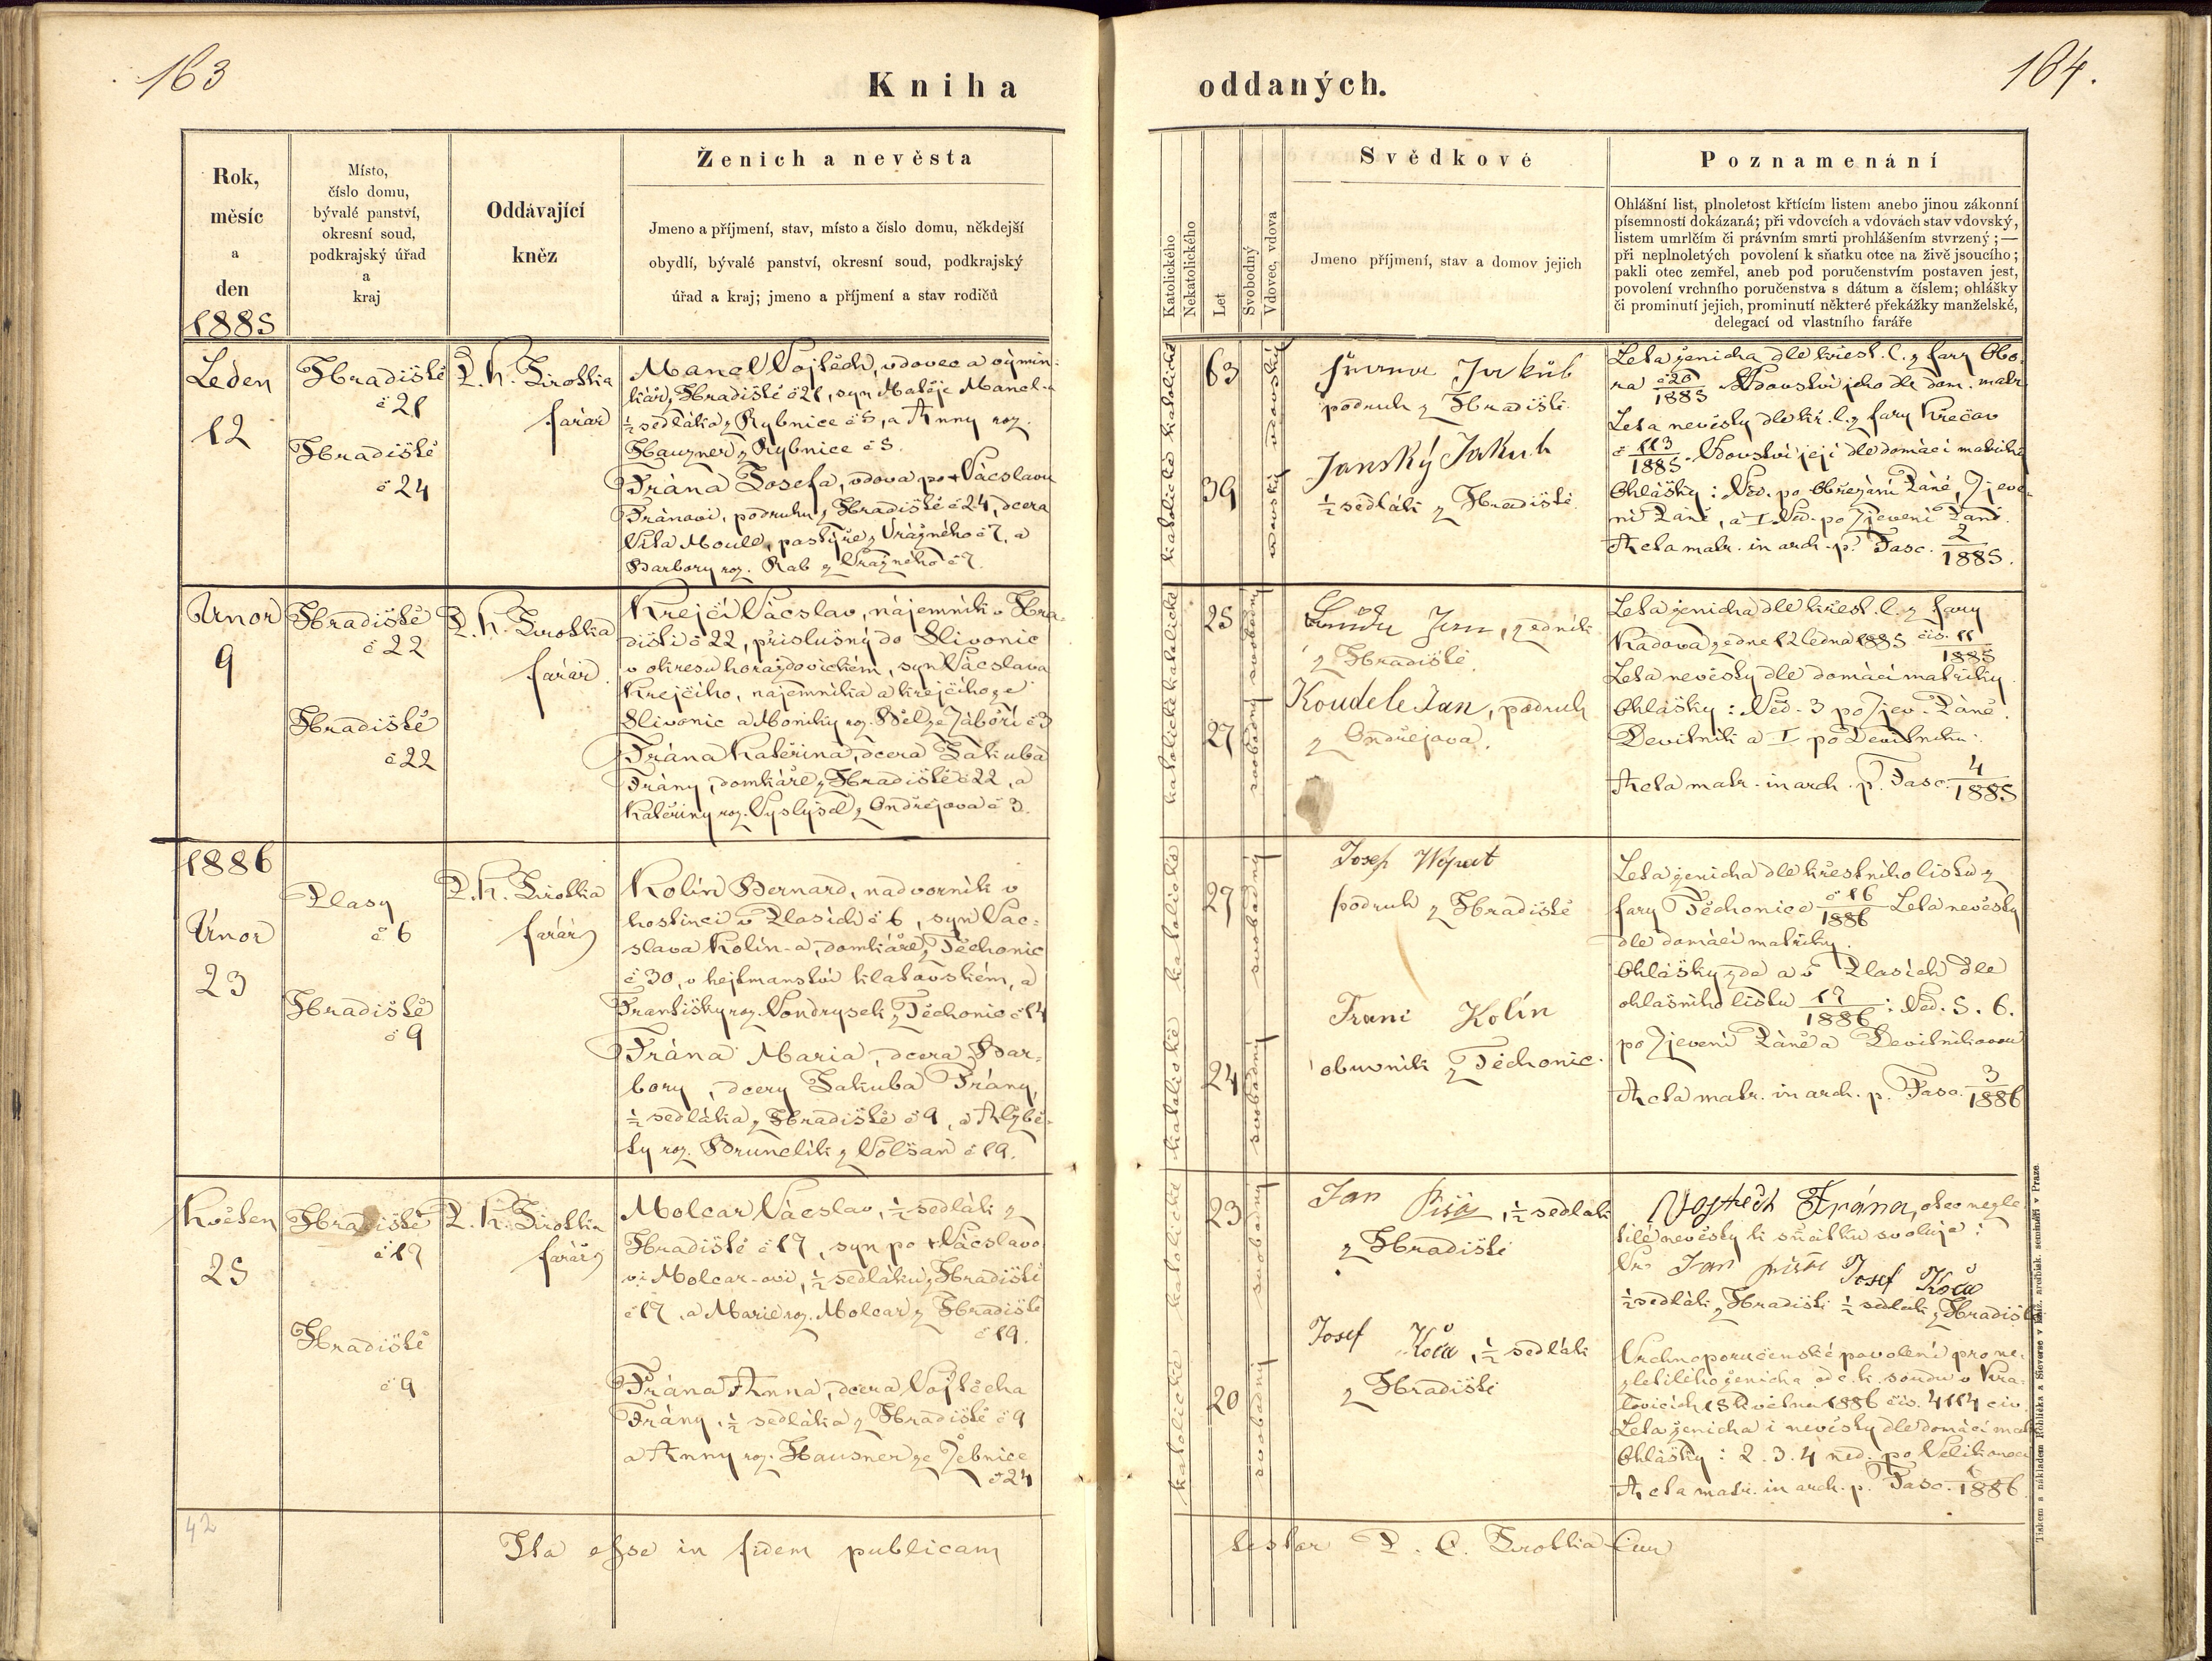 163
Kniha
Rok,
měsíc
a
den
1885
Místo,
číslo domu,
bývalé panství,
okresní soud,
podkrajský úřad
a
kraj
Oddávající
kněz
Ženich a nevěsta
Jmeno a příjmení, stav, místo a číslo domu, někdejší
obydlí, bývalé panství, okresní soud, podkrajský
úřad a kraj; jmeno a příjmení a stav rodičů
Leden
12
Hradiště
č 21
Hradiště
č 24
P. K.
farář
Manel Vojtěch, vdovec a výmin-
kář z Hradiště č 21, syn Matěje Manel-a
½ sedláka z Rybnice č 5, a Anny roz.
Hauzner z Rybnice č 5.
Frána Josefa, vdova po † Vácslavu
Fránovi, podruhu z Hradiště č 24, dcera
Víta Moule, pastýře z Vrážného č 7, a
Barbory roz. Rab z Vrážného č 7.
Únor
9
Hradiště
č 22
Hradiště
č 22
P. K.
farář
Krejčí Vácslav, nájemník v Hra-
dišti č 22, příslušný do Slivonic
v okresu horažďovickém, syn Vácslava
Krejčího, nájemníka a krejčího ze
Slivonic a Moniky roz. Běl ze Záboří č 3
Frána Kateřina, dcera Jakuba
Frány, domkáře z Hradiště č 22, a
Kateřiny roz. Vyslyšel z Ondřejova č 3.
1886
Únor
23
Plasy
č 6
Hradiště
č 9
P. K.
farář
Kolín Bernard, nadvorník v
hostinci v Plasích č 6, syn Vác-
slava Kolín-a, domkáře z Těchonic
č 30, v hejtmanství klatovském, a
Františky roz. Vondrysek z Těchonic č 14
Frána Maria, dcera Bar-
bory, dcery Jakuba Frány,
½ sedláka z Hradiště č 9, a Alžbě-
ty roz. Brunclík z Volšan č 19.
Květen
25
Hradiště
č 17
Hradiště
č 9
P. K.
farář
Molcar Vácslav, ½ sedlák z
Hradiště č 17, syn po † Vácslavo
vi Molcar-ovi, ½ sedláku z Hradiště
č 17, a Marie roz. Molcar z Hradiště
č 19.
Frána Anna, dcera Vojtěcha
Frány, ½ sedláka z Hradiště č 9
a Anny roz. Hausner ze Žebnice
č 24
42
Ita esse in fidem publicam
164.
oddaných.
Katolického
Nekatolického
Let
Svobodný
Vdovec, vdova
Svědkové
Jmeno příjmení, stav a domov jejich
Poznamenání
Ohlášní list, plnoletost křtícím listem anebo jinou zákonní
písemností dokázaná; při vdovcích a vdovách stav vdovský,
listem umrlčím či právním smrti prohlášením stvrzený; —
při neplnoletých povolení k sňatku otce na živě jsoucího;
pakli otec zemřel, aneb pod poručenstvím postaven jest,
povolení vrchního poručenstva s dátum a číslem; ohlášky
či prominutí jejich, prominutí některé překážky manželské,
delegací od vlastního faráře
katolické katolické
63
39
vdovský vdovský
Jakub
podruh z Hradiště.
Janský Jakub
½ sedlák z Hradiště.
Leta ženicha dle křest. l. z fary Obo-
ra č 26/1885 Vdovství jeho dle dom. matr.
Leta nevěsty dle kř. l. z fary Křečov
č 113/1885. Vdovství její dle domácí matriky
Ohlášky: Ned. po Obřezání Páně, Zjeve-
ní Páně, a I. Ned. po Zjevení Páně.
Acta matr. in arch. p. Fasc. 2/1885.
katolické katolické
25
27
svobodný svobodný
Jan, zedník
z Hradiště.
Koudele Jan, podruh
z Ondřejova.
Leta ženicha dle křest. l. z fary
Kadova ze dne 12 ledna 1885 čís. 11/1885
Leta nevěsty dle domácí matriky
Ohlášky: Ned. 3 po Zjev. Páně.
Devítník a I po Devítníku.
Acta matr. in arch. p. Fasc. 4/1885
katolické katolické
27
24
svobodný svobodný
Josef
podruh z Hradiště
Kolín
obuvník z Těchonic.
Leta ženicha dle křestního listu z
fary Těchonice č 16/1886 Leta nevěsty
dle domácí matriky.
Ohlášky zde a v Plasích dle
ohlašního listu 17/1886: Ned. 5. 6.
po Zjevení Páně a Devítníkovou
Acta matr. in arch. p. Fasc. 3/1886
katolické katolické
23
20
svobodný svobodný
Jan Píša, ½ sedlák
z Hradiště
Josef Koča, ½ sedlák
z Hradiště
Vojtěch Frána, otec nezle
tilé nevěsty k sňatku svoluje:
Jan Píša Josef Koča
½ sedlák z Hradiště ½ sedlák z Hradiště
Vrchnoporučenské povolení pro ne-
zletilého ženicha od c. k. soudu v Kra-
lovicích 18 května 1886 čís. 4114 civ.
Leta ženicha i nevěsty dle domácí matr.
Ohlášky: 2. 3. 4 ned. po Velikonoci
Acta matr. in arch. p. Fasc. /1886
testor P. C.
Tiskem a nákladem Rohlíčka a Sieverse v kníž. arcibisk. semináři v Praze.